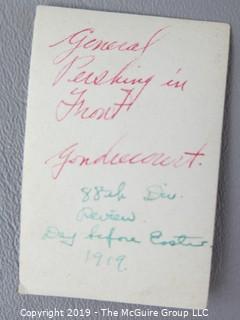 General
Pershing in
Front
Gondrecourt.
88th Div.
Review.
Day before Easter.
1919.
Copyright 2019 - The McGuire Group LLC